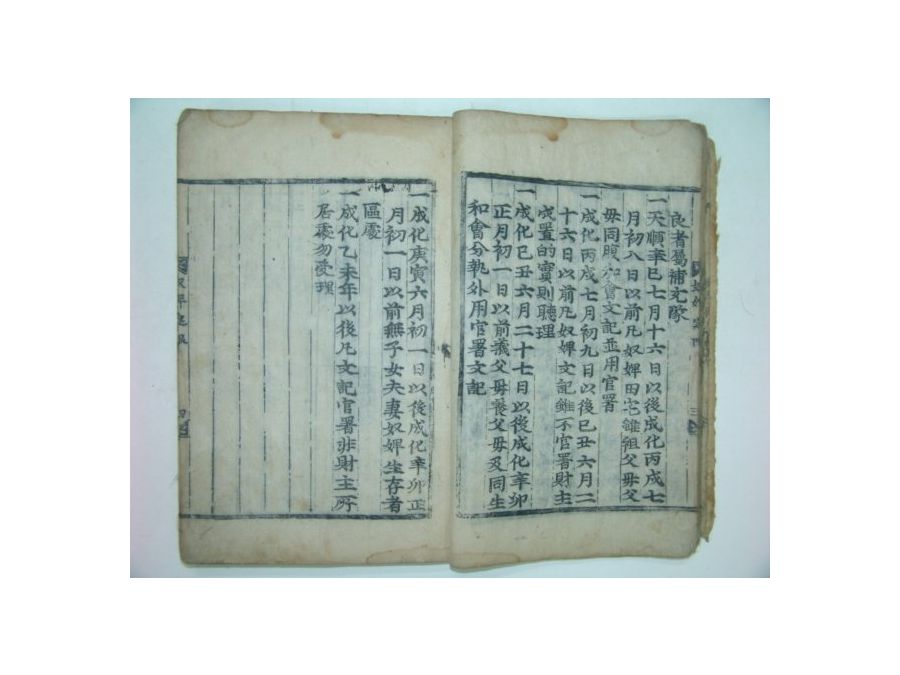 良者屬補充隊
一天順辛巳七月十六日以後成化丙戌七
月初八日以前凡奴婢田宅雖祖父母父
母同腹和會文記並用官署
一成化丙戌七月初九日以後己丑六月二
十六日以前凡奴婢文記雖不官署財主
成置的實則聽理
一成化己丑六月二十七日以後成化辛卯
正月初一日以前義父母養父母及同生
和會分執外用官署文記
一成化庚寅六月初一日以後成化辛卯正
月初一日以前無子女夫妻奴婢生存者
區處
一成化乙未年以後凡文記官署非財主所
居處勿受理
奴婢定限
四